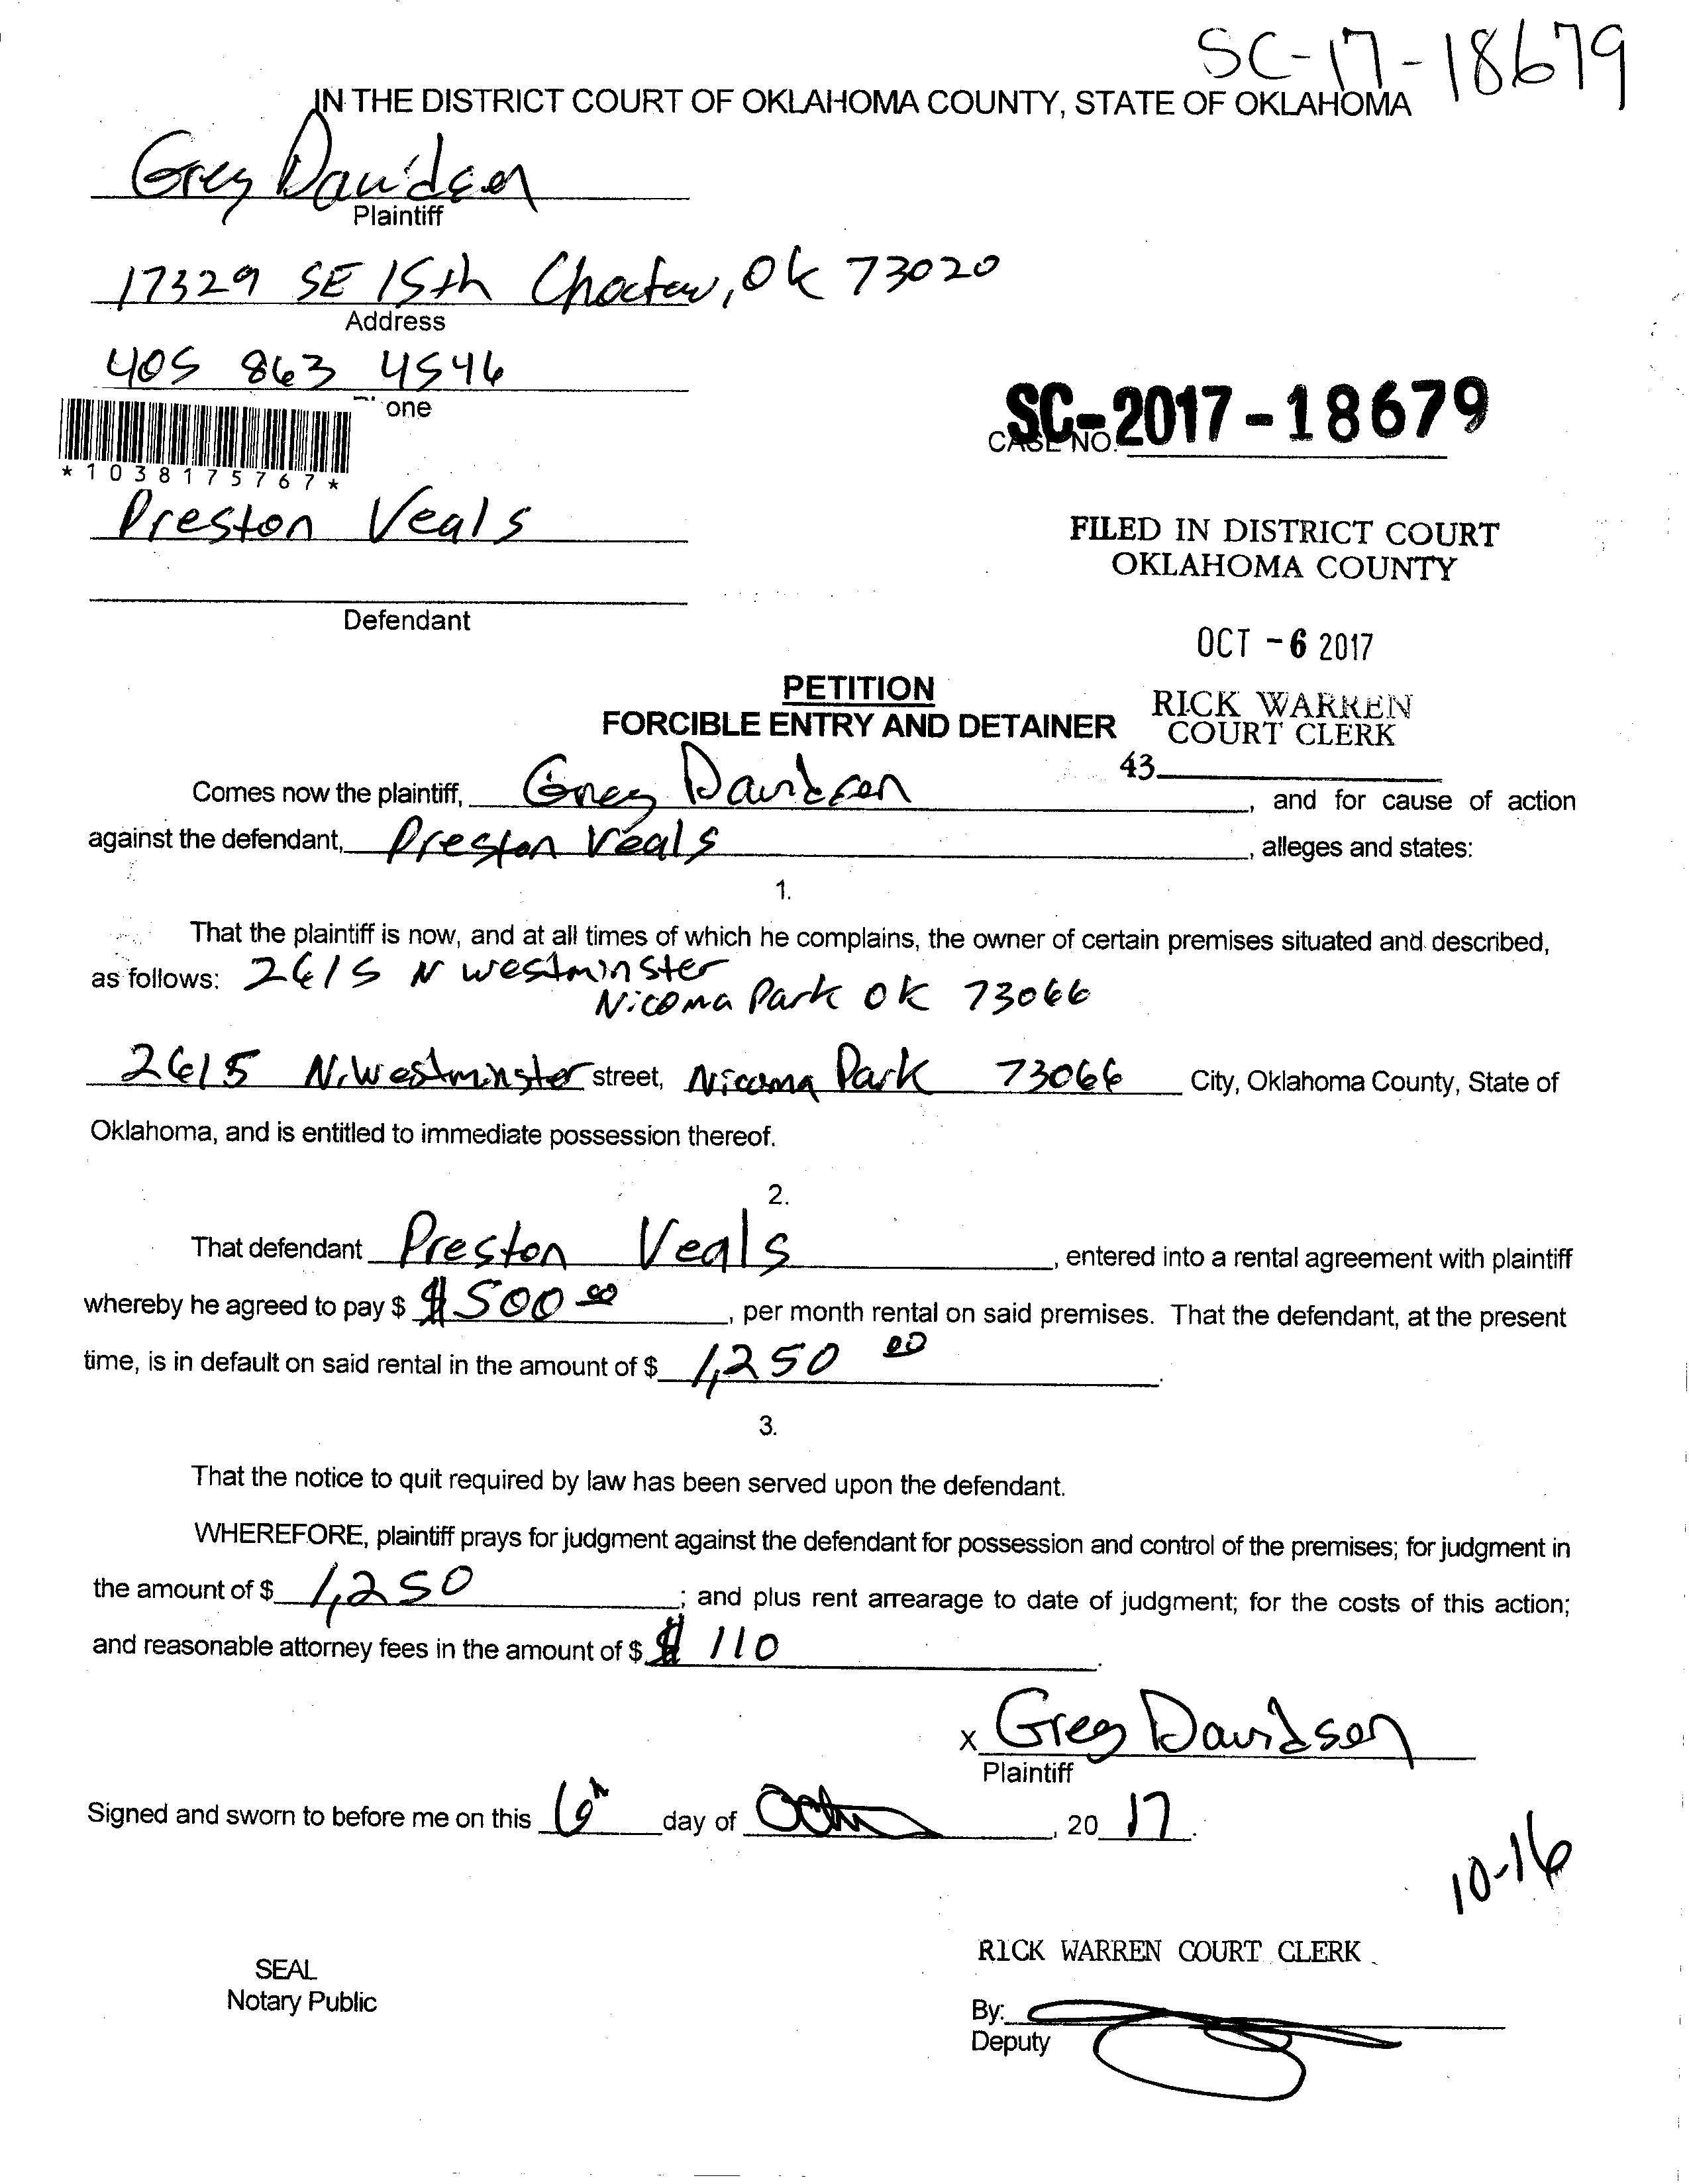 SC-17-18679
IN THE DISTRICT COURT OF OKLAHOMA COUNTY, STATE OF OKLAHOMA
Greg Davidson
Plaintiff
17329 SE 15th Choctaw, Ok 73020
Address
405 863 4546
one
*1038175767*
SC-2017-18679
CASE NO.
Preston Veals
FILED IN DISTRICT COURT
OKLAHOMA COUNTY
Defendant
OCT -6 2017
PETITION
FORCIBLE ENTRY AND DETAINER
RICK WARREN
COURT CLERK
43
Comes now the plaintiff, Greg Davidson, and for cause of action
against the defendant, Preston Veals, alleges and states:
1.
That the plaintiff is now, and at all times of which he complains, the owner of certain premises situated and described,
as follows: 2615 N westminster
Nicoma Park OK 73066
2615 N. Westminster street, Nicoma Park 73066 City, Oklahoma County, State of
Oklahoma, and is entitled to immediate possession thereof.
2.
That defendant Preston Veals, entered into a rental agreement with plaintiff
whereby he agreed to pay $ $500 00, per month rental on said premises. That the defendant, at the present
time, is in default on said rental in the amount of $ 1,250 00.
3.
That the notice to quit required by law has been served upon the defendant.
WHEREFORE, plaintiff prays for judgment against the defendant for possession and control of the premises; for judgment in
the amount of $ 1,250; and plus rent arrearage to date of judgment; for the costs of this action;
and reasonable attorney fees in the amount of $ $ 110.
x Greg Davidson
Plaintiff
Signed and sworn to before me on this 6th day of Oct, 20 17.
10-16
RICK WARREN COURT CLERK
SEAL
Notary Public
By:
Deputy